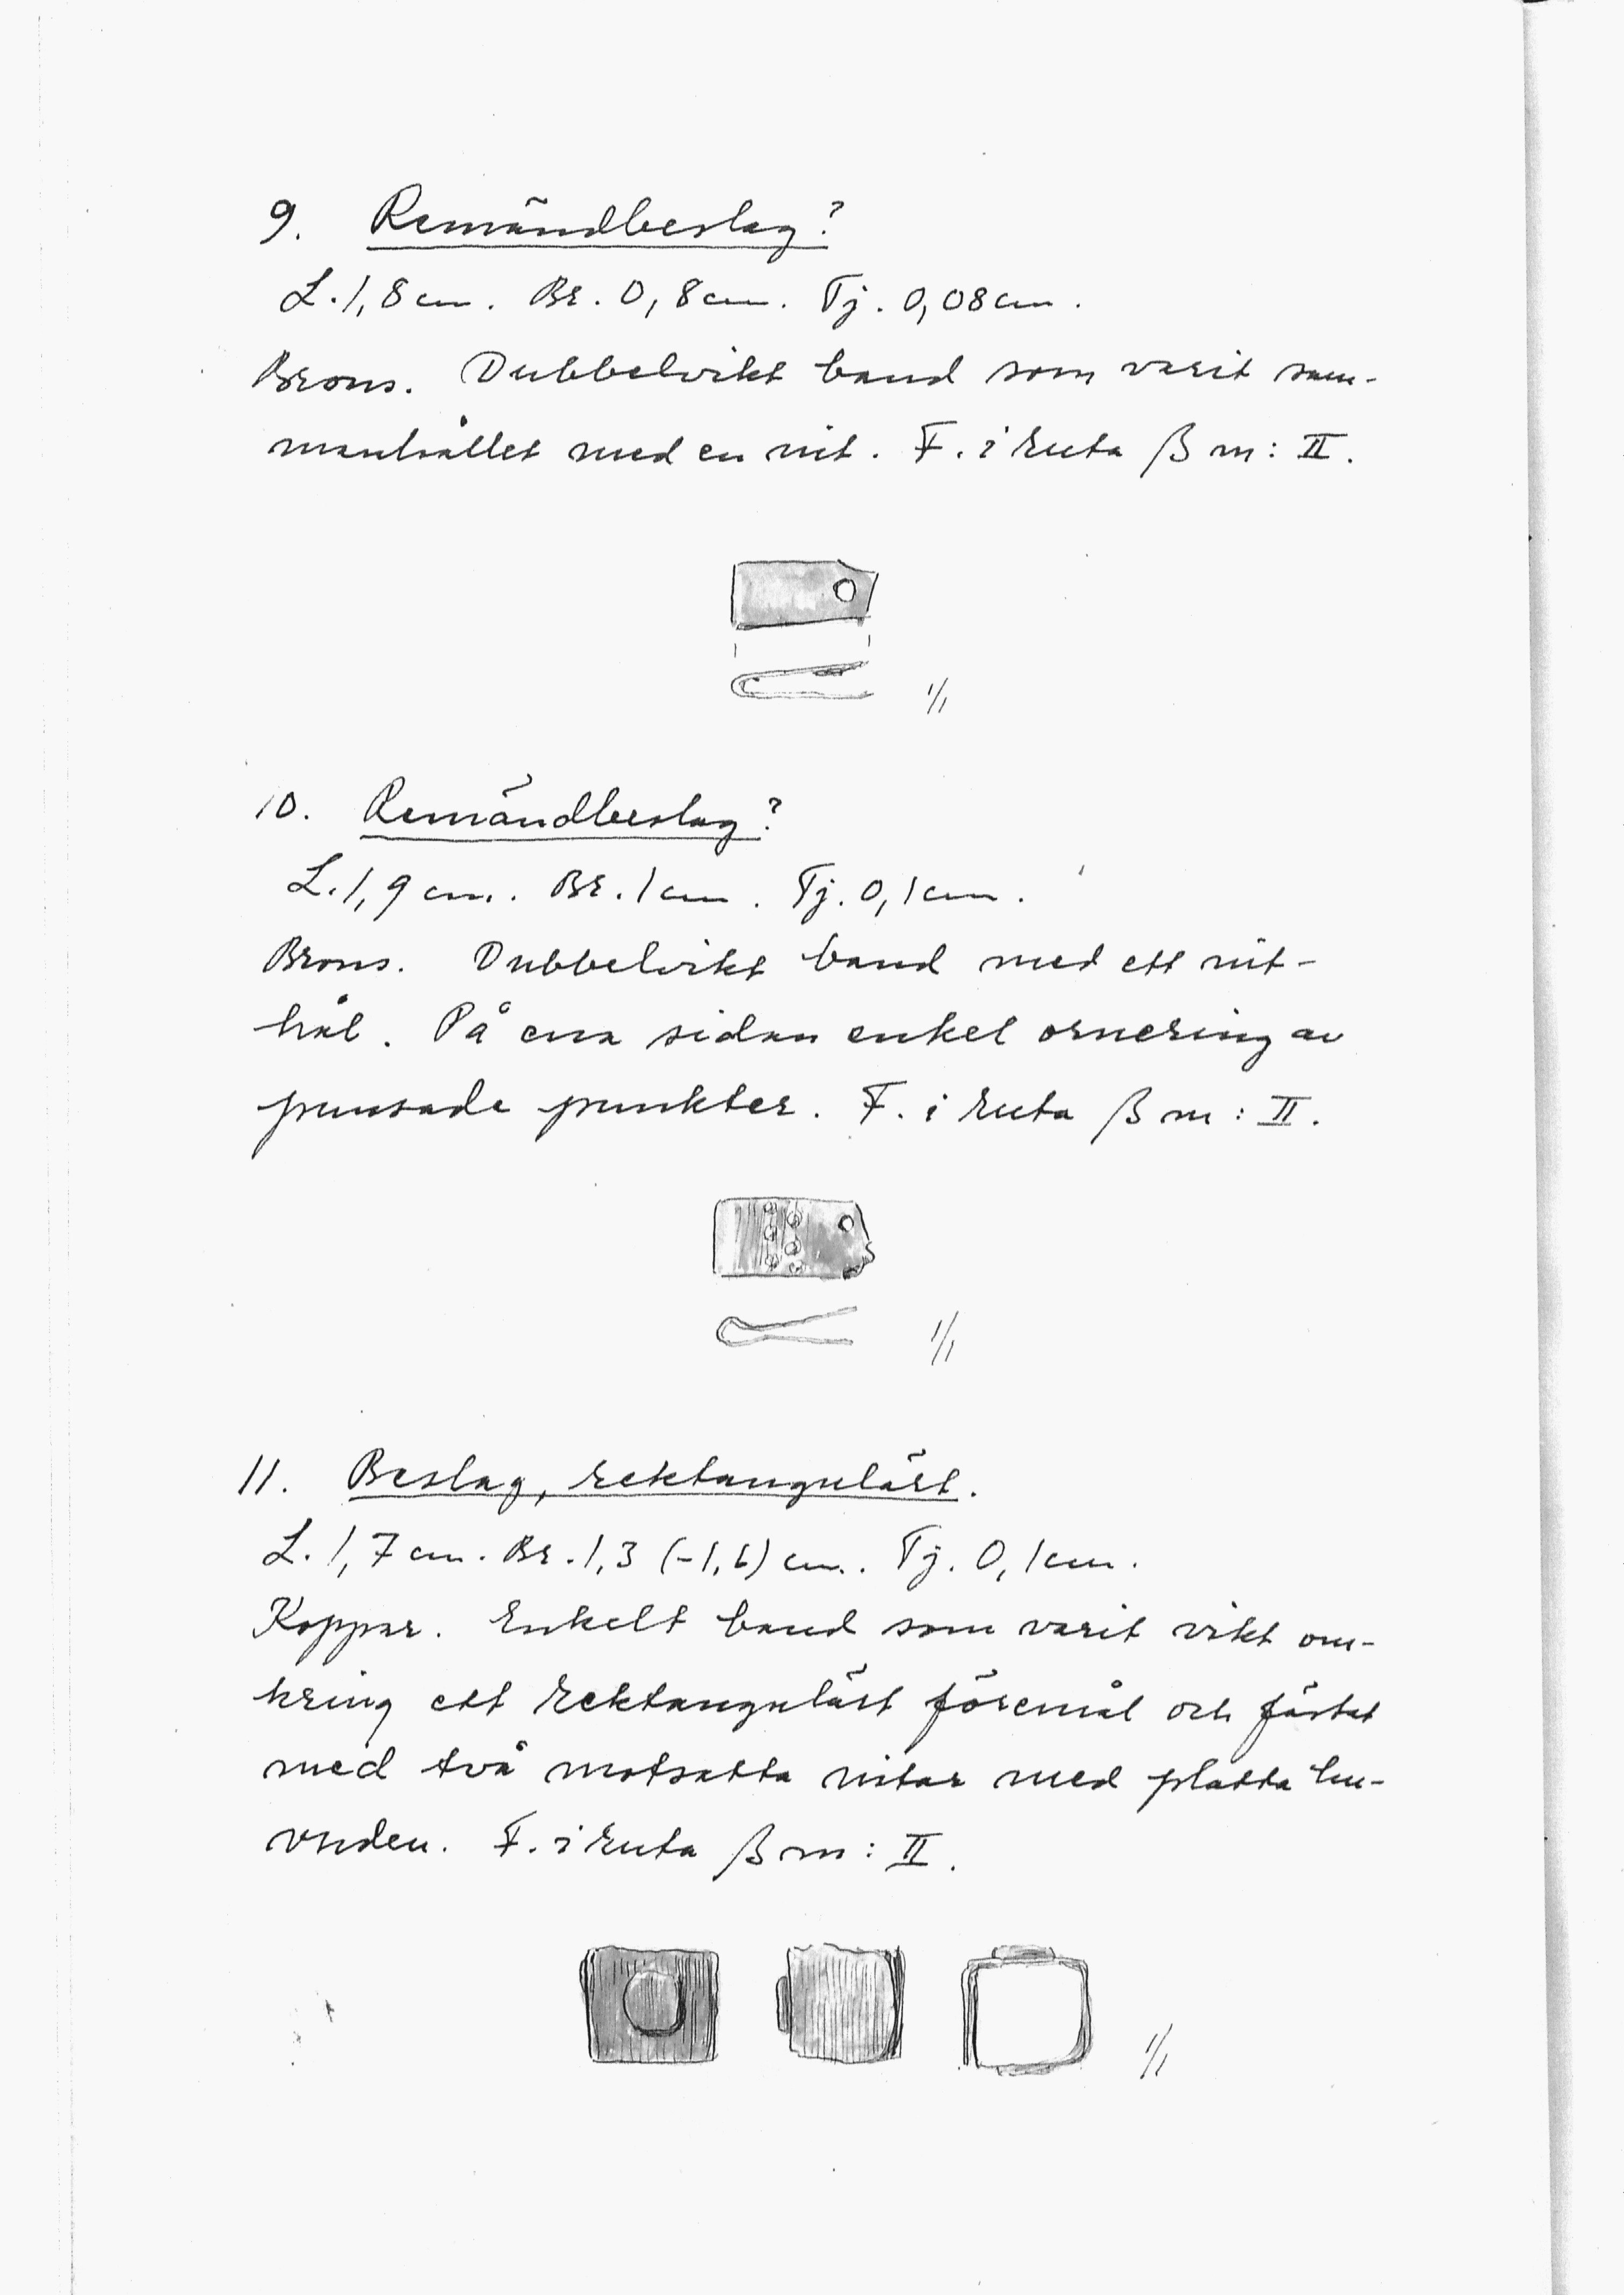 9. Remändbeslag?
L. 1,8 cm. Br. 0,8 cm. Tj. 0,08 cm.
Brons. Dubbelvikt band som varit sam-
manhållet med en nit. F. i ruta β m: II.
1/1
10. Remändbeslag?
L. 1,9 cm. Br. 1 cm. Tj. 0,1 cm.
Brons. Dubbelvikt band med ett nit-
hål. På ena sidan enkel ornering av
punsade punkter. F. i ruta β m: II.
1/1
11. Beslag, rektangulärt.
L. 1,7 cm. Br. 1,3 (-1,6) cm. Tj. 0,1 cm.
Koppar. Enkelt band som varit vikt om-
kring ett rektangulärt föremål och fästat
med två motsatta nitar med platta hu-
vuden. F. i ruta β m: II.
1/1